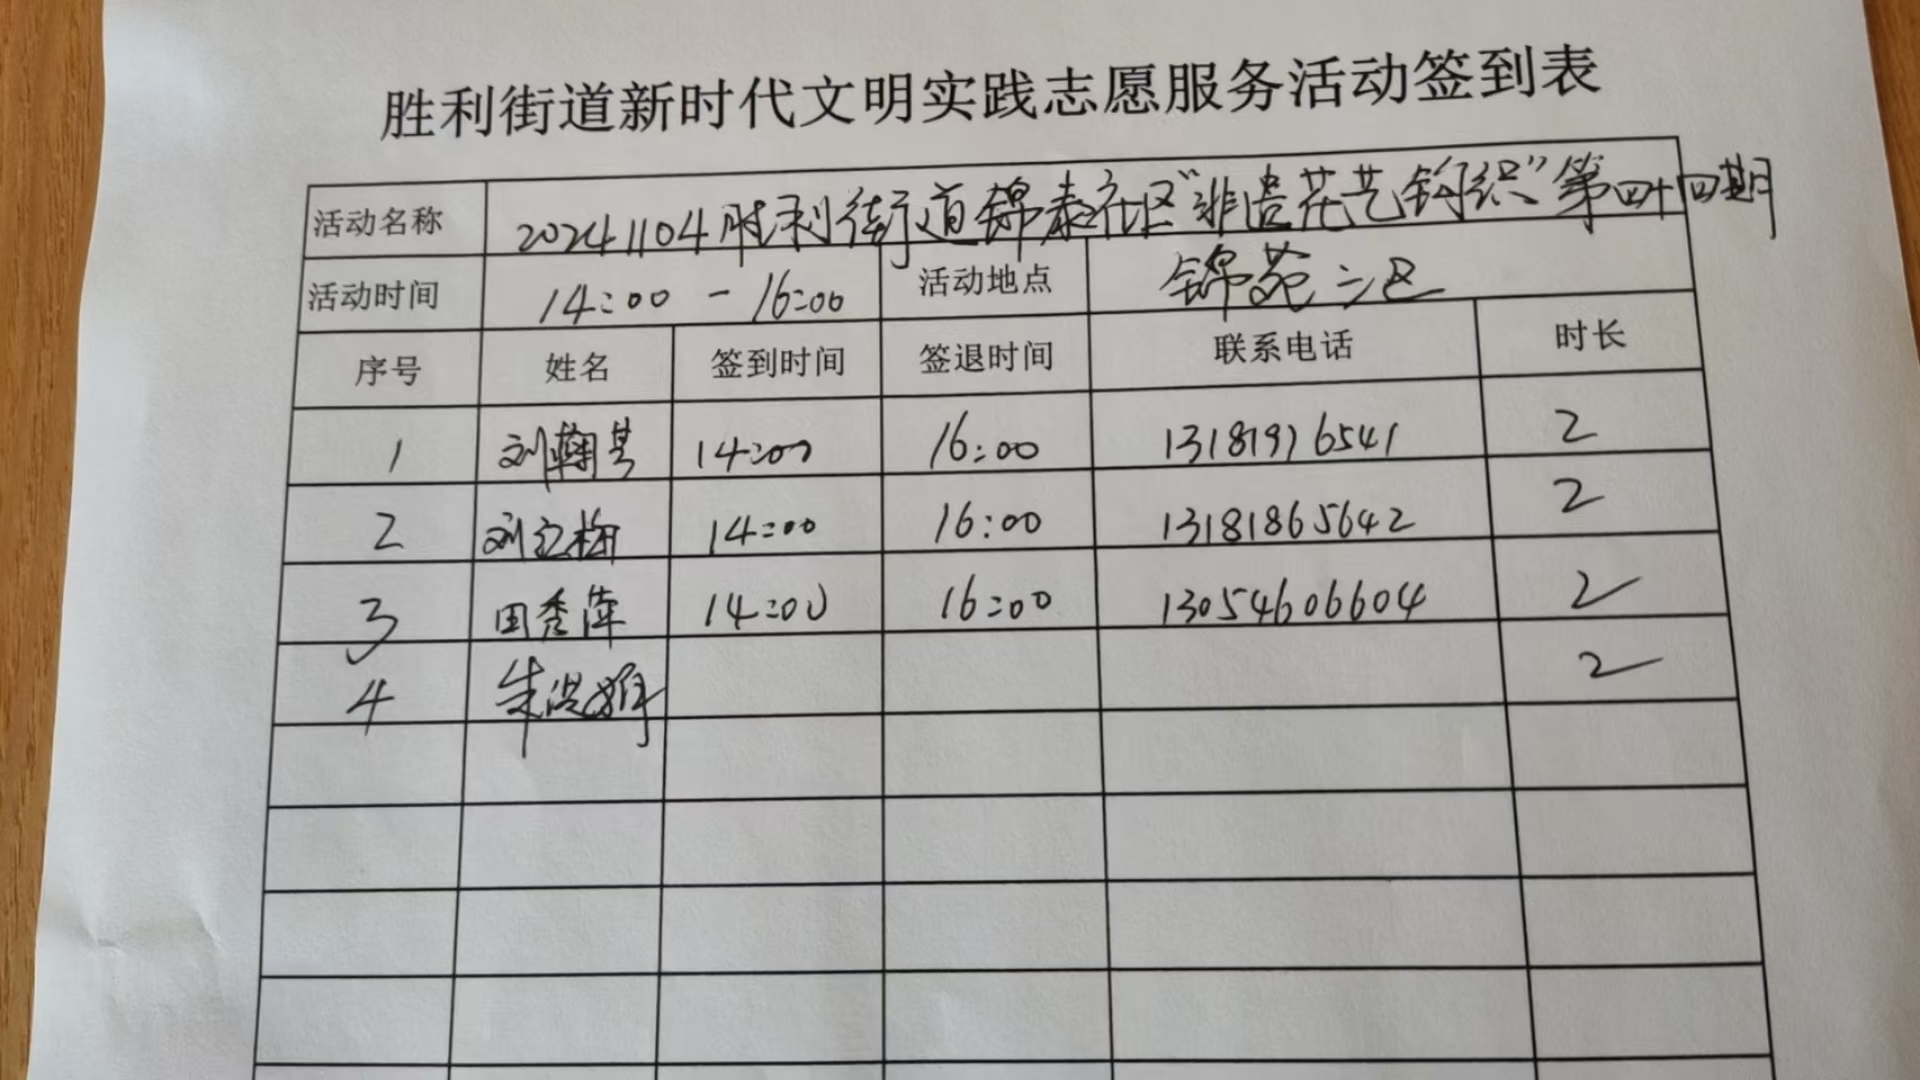 胜利街道新时代文明实践志愿服务活动签到表
活动名称 20241104胜利街道锦泰社区"非遗花艺钩织"第四十四期
活动时间 14:00 - 16:00 活动地点 锦苑二区
序号 姓名 签到时间 签退时间 联系电话 时长
1 刘 14:00 16:00 13181976541 2
2 刘红梅 14:00 16:00 13181865642 2
3 田秀萍 14:00 16:00 13054606604 2
4 朱洪娟 2